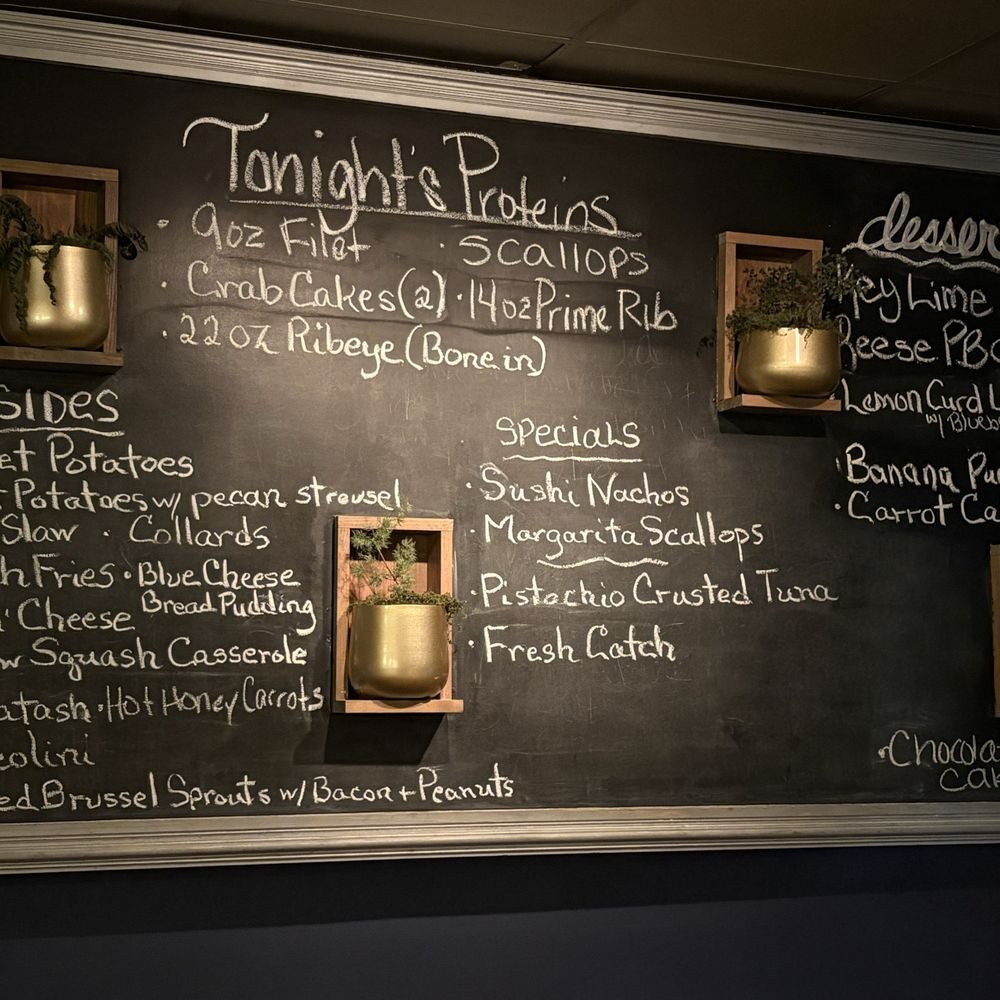 Tonight's Proteins
· 9oz Filet · Scallops
· Crab Cakes (2) · 14oz Prime Rib
· 22oz Ribeye (Bone in)
SIDES
et Potatoes
Potatoes w/ pecan streusel
Slaw · Collards
h Fries · Blue Cheese
Bread Pudding
n' Cheese
w Squash Casserole
atash · Hot Honey Carrots
colini
ed Brussel Sprouts w/ Bacon + Peanuts
Specials
· Sushi Nachos
· Margarita Scallops
· Pistachio Crusted Tuna
· Fresh Catch
desser
ey Lime
Reese PB
Lemon Curd
w/ Blueb
· Banana Pu
· Carrot Ca
· Chocola
Ca